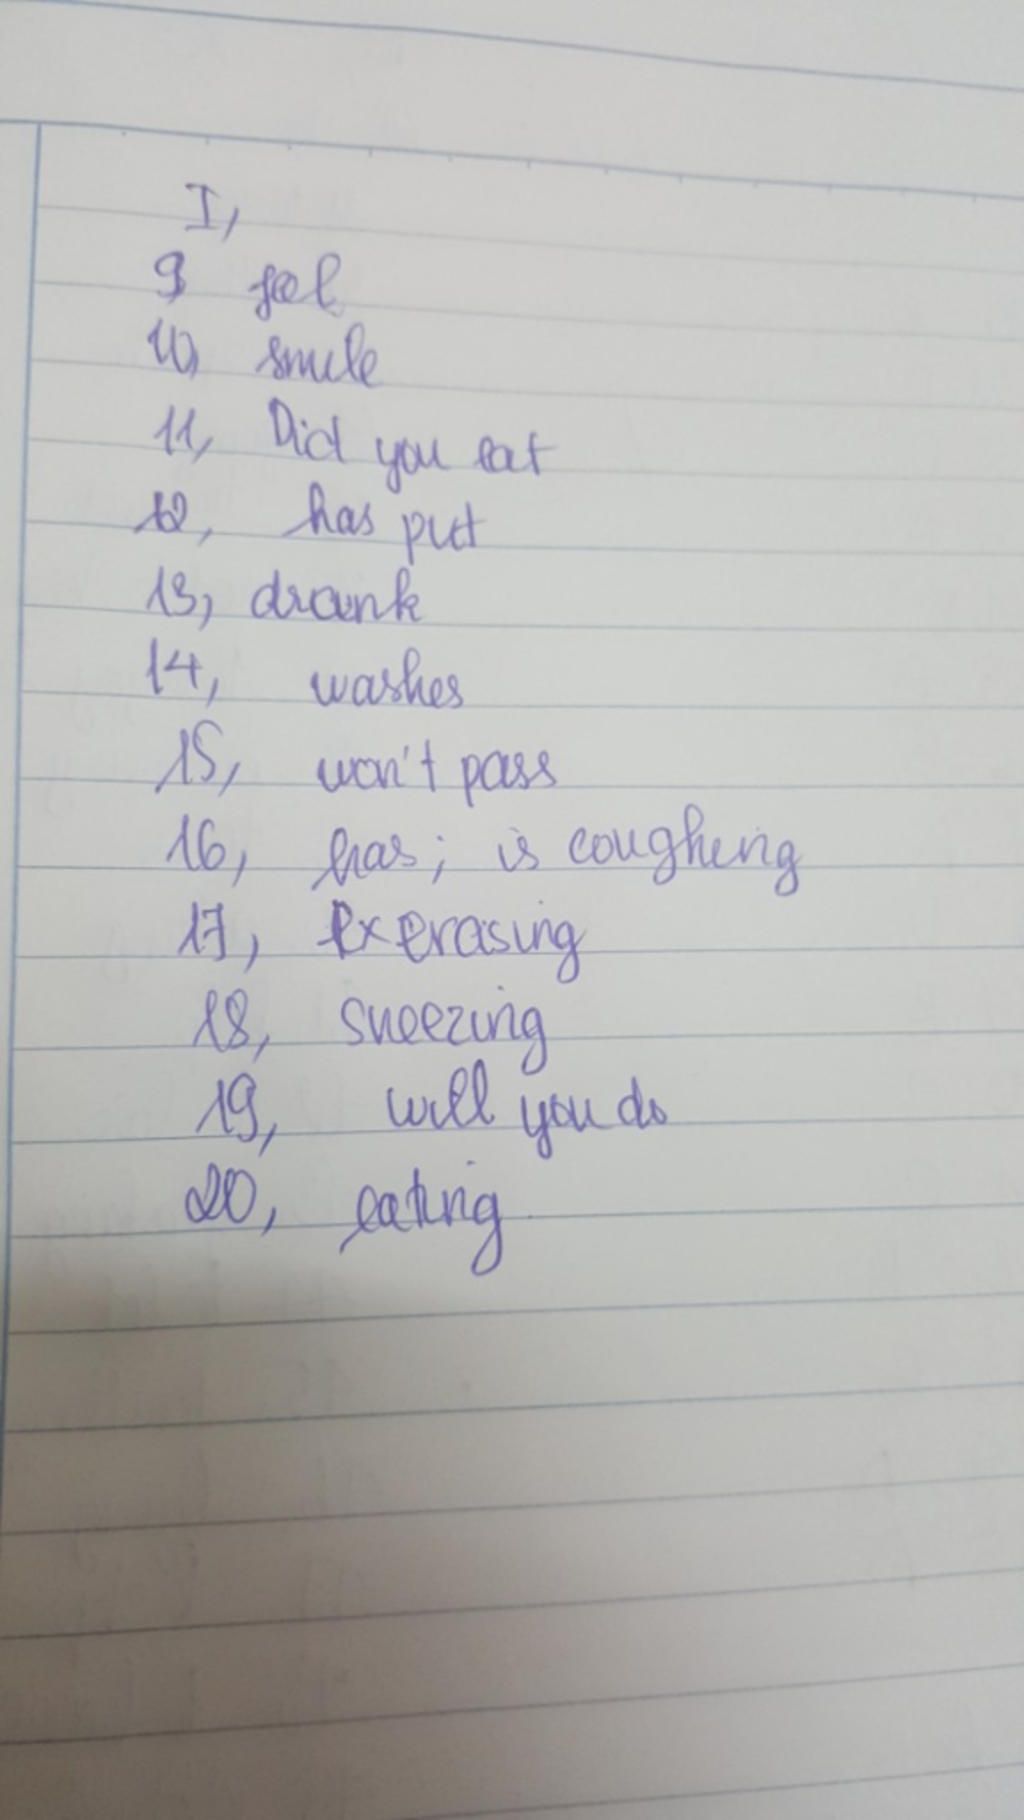 I,
9, feel
10, smile
11, Did you eat
12, has put
13, drank
14, washes
15, won't pass
16, has; is coughing
17, Exerasing
18, sneezing
19, will you do
20, eating